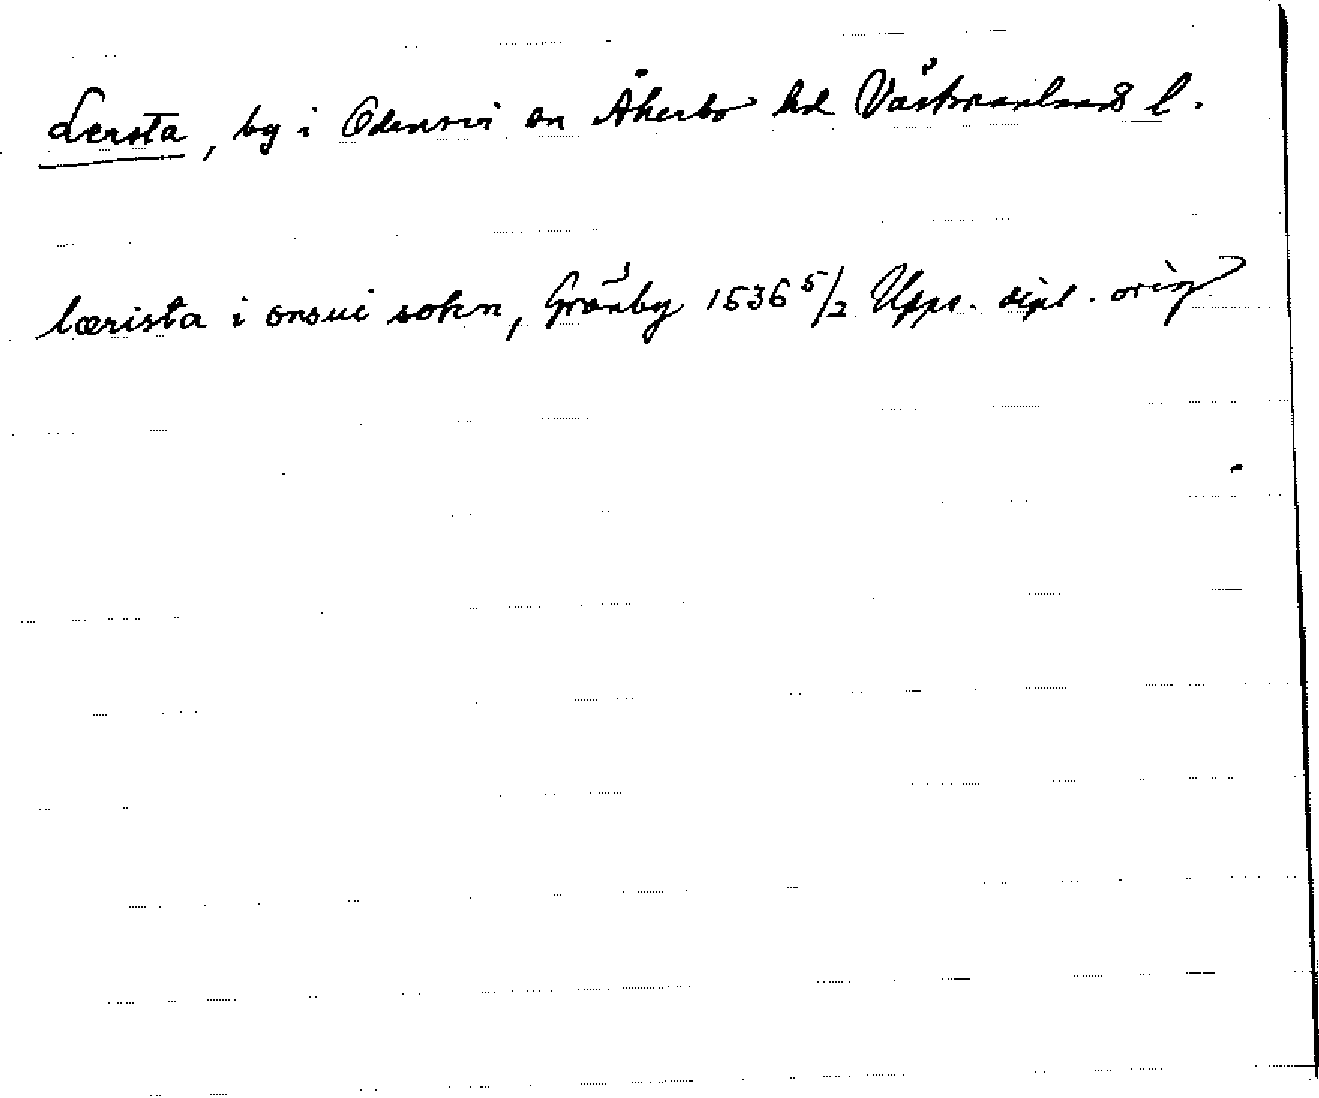 Lersta, by i Odensvi sn Åkerbo hd Västmanlands l.
lærista i onsui sokn, Gränby 1536 5/2 Upps. dipl. orig